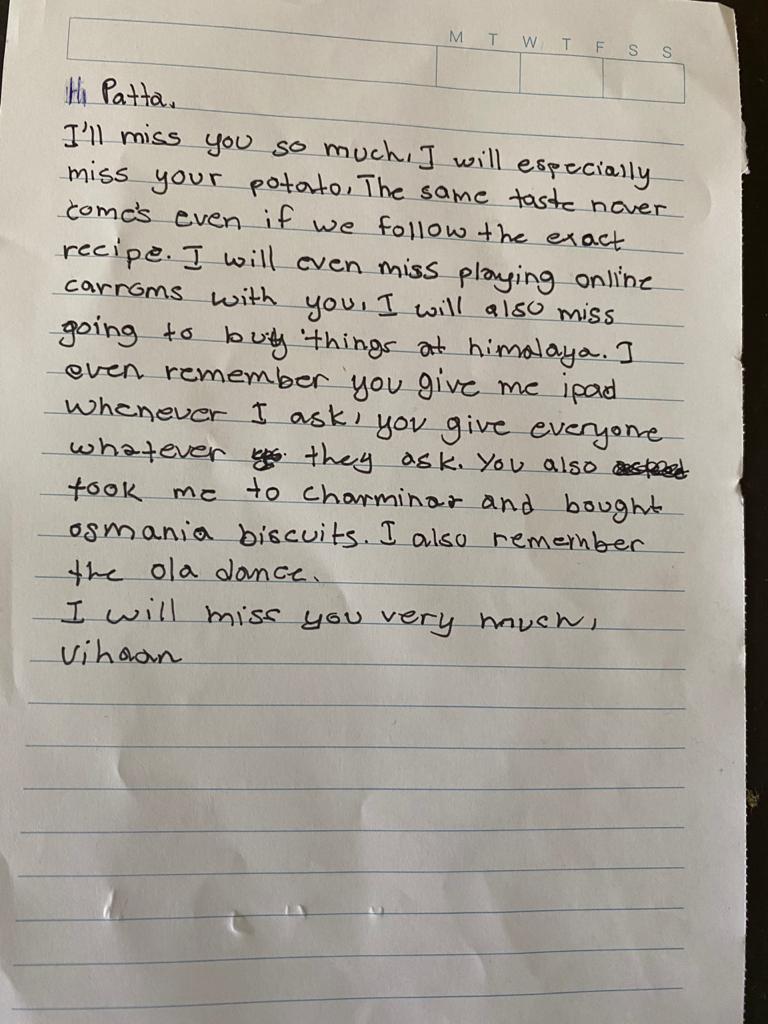 M T W T F S S
Hi Patta,
I'll miss you so much, I will especially
miss your potato, The same taste never
comes even if we follow the exact
recipe. I will even miss playing online
carroms with you, I will also miss
going to buy things at himalaya. I
even remember you give me ipad
whenever I ask, you give everyone
whatever they ask. You also
took me to charminar and bought
osmania biscuits. I also remember
the ola dance.
I will miss you very much,
Vihaan